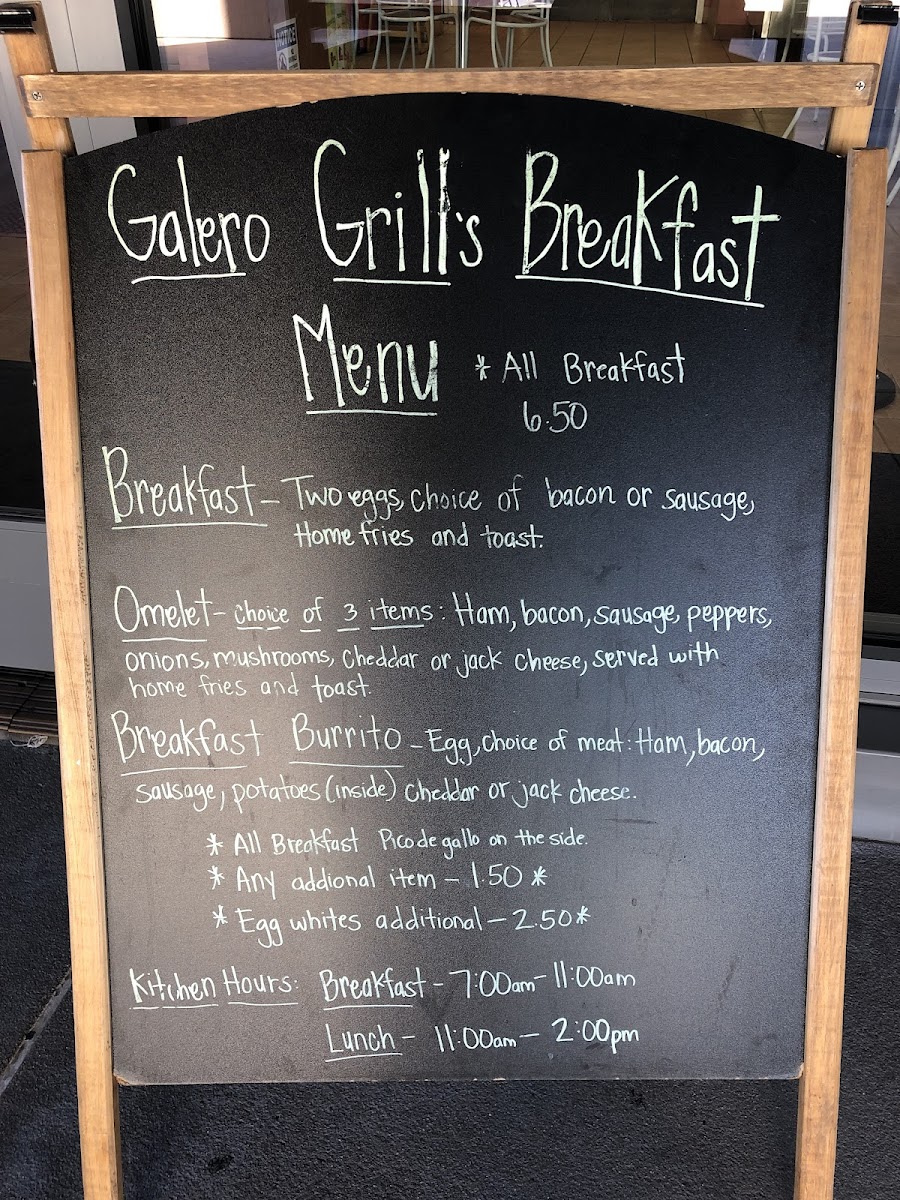 Galero Grill's Breakfast
Menu * All Breakfast
6.50
Breakfast - Two eggs, choice of bacon or sausage,
Home fries and toast.
Omelet - choice of 3 items: Ham, bacon, sausage, peppers,
onions, mushrooms, cheddar or jack cheese, served with
home fries and toast.
Breakfast Burrito - Egg, choice of meat: Ham, bacon,
sausage, potatoes (inside) cheddar or jack cheese.
* All Breakfast Pico de gallo on the side.
* Any addional item - 1.50 *
* Egg whites additional - 2.50 *
Kitchen Hours: Breakfast - 7:00am - 11:00am
Lunch - 11:00am - 2:00pm